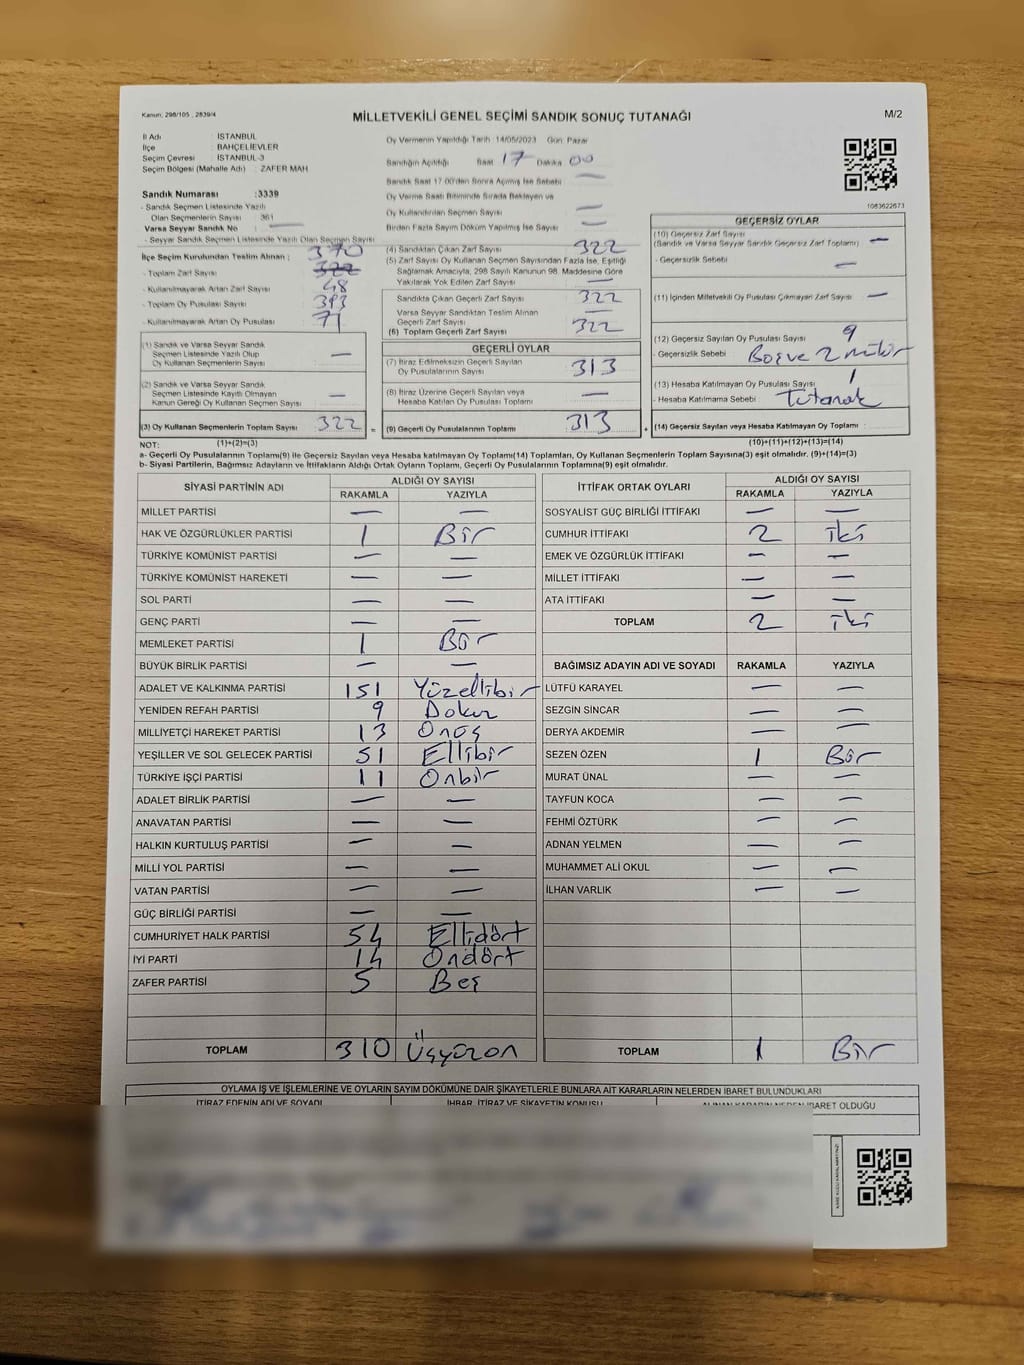 Kanun, 298/105 , 2839/4
MİLLETVEKİLİ GENEL SEÇİMİ SANDIK SONUÇ TUTANAĞI
M/2
İl Adı : İSTANBUL
İlçe : BAHÇELİEVLER
Seçim Çevresi : İSTANBUL-3
Seçim Bölgesi (Mahalle Adı) : ZAFER MAH
Sandık Numarası :3339
- Sandık Seçmen Listesinde Yazılı
Olan Seçmenlerin Sayısı : 361
Varsa Seyyar Sandık No : —
- Seyyar Sandık Seçmen Listesinde Yazılı Olan Seçmen Sayısı
İlçe Seçim Kurulundan Teslim Alınan ; 370
- Toplam Zarf Sayısı : 322
- Kullanılmayarak Artan Zarf Sayısı : 48
- Toplam Oy Pusulası Sayısı : 393
- Kullanılmayarak Artan Oy Pusulası : 71
(1) Sandık ve Varsa Seyyar Sandık
Seçmen Listesinde Yazılı Olup
Oy Kullanan Seçmenlerin Sayısı —
(2) Sandık ve Varsa Seyyar Sandık
Seçmen Listesinde Kayıtlı Olmayan
Kanun Gereği Oy Kullanan Seçmen Sayısı —
(3) Oy Kullanan Seçmenlerin Toplam Sayısı 322 =
Oy Vermenin Yapıldığı Tarih :14/05/2023 Gün Pazar
Sandığın Açıldığı Saat 17 Dakika 00
Sandık Saat 17:00'den Sonra Açılmış İse Sebebi —
Oy Verme Saati Bitiminde Sırada Bekleyen ve
Oy Kullandırılan Seçmen Sayısı —
Birden Fazla Sayım Döküm Yapılmış İse Sayısı —
(4) Sandıktan Çıkan Zarf Sayısı 322
(5) Zarf Sayısı Oy Kullanan Seçmen Sayısından Fazla İse, Eşitliği
Sağlamak Amacıyla, 298 Sayılı Kanunun 98. Maddesine Göre
Yakılarak Yok Edilen Zarf Sayısı —
Sandıkta Çıkan Geçerli Zarf Sayısı 322
Varsa Seyyar Sandıktan Teslim Alınan
Geçerli Zarf Sayısı —
(6) Toplam Geçerli Zarf Sayısı 322
GEÇERLİ OYLAR
(7) İtiraz Edilmeksizin Geçerli Sayılan
Oy Pusulalarının Sayısı 313
(8) İtiraz Üzerine Geçerli Sayılan veya
Hesaba Katılan Oy Pusulası Toplamı —
(9) Geçerli Oy Pusulalarının Toplamı 313 +
1083622873
GEÇERSİZ OYLAR
(10) Geçersiz Zarf Sayısı
(Sandık ve Varsa Seyyar Sandık Geçersiz Zarf Toplamı) —
- Geçersizlik Sebebi : —
(11) İçinden Milletvekili Oy Pusulası Çıkmayan Zarf Sayısı —
(12) Geçersiz Sayılan Oy Pusulası Sayısı : 9
- Geçersizlik Sebebi : Boş ve 2 mühür
(13) Hesaba Katılmayan Oy Pusulası Sayısı : 1
- Hesaba Katılmama Sebebi : Tutanak
(14) Geçersiz Sayılan veya Hesaba Katılmayan Oy Toplamı :
NOT: (1)+(2)=(3) (10)+(11)+(12)+(13)=(14)
a- Geçerli Oy Pusulalarının Toplamı(9) ile Geçersiz Sayılan veya Hesaba katılmayan Oy Toplamı(14) Toplamları, Oy Kullanan Seçmenlerin Toplam Sayısına(3) eşit olmalıdır. (9)+(14)=(3)
b- Siyasi Partilerin, Bağımsız Adayların ve İttifakların Aldığı Ortak Oyların Toplamı, Geçerli Oy Pusulalarının Toplamına(9) eşit olmalıdır.
SİYASİ PARTİNİN ADI ALDIĞI OY SAYISI
RAKAMLA YAZIYLA
MİLLET PARTİSİ — —
HAK VE ÖZGÜRLÜKLER PARTİSİ 1 Bir
TÜRKİYE KOMÜNİST PARTİSİ — —
TÜRKİYE KOMÜNİST HAREKETİ — —
SOL PARTİ — —
GENÇ PARTİ — —
MEMLEKET PARTİSİ 1 Bir
BÜYÜK BİRLİK PARTİSİ — —
ADALET VE KALKINMA PARTİSİ 151 Yüzellibir
YENİDEN REFAH PARTİSİ 9 Dokuz
MİLLİYETÇİ HAREKET PARTİSİ 13 Onüç
YEŞİLLER VE SOL GELECEK PARTİSİ 51 Ellibir
TÜRKİYE İŞÇİ PARTİSİ 11 Onbir
ADALET BİRLİK PARTİSİ — —
ANAVATAN PARTİSİ — —
HALKIN KURTULUŞ PARTİSİ — —
MİLLİ YOL PARTİSİ — —
VATAN PARTİSİ — —
GÜÇ BİRLİĞİ PARTİSİ — —
CUMHURİYET HALK PARTİSİ 54 Ellidört
İYİ PARTİ 14 Ondört
ZAFER PARTİSİ 5 Beş
TOPLAM 310 Üçyüzon
İTTİFAK ORTAK OYLARI ALDIĞI OY SAYISI
RAKAMLA YAZIYLA
SOSYALİST GÜÇ BİRLİĞİ İTTİFAKI — —
CUMHUR İTTİFAKI 2 iki
EMEK VE ÖZGÜRLÜK İTTİFAKI — —
MİLLET İTTİFAKI — —
ATA İTTİFAKI — —
TOPLAM 2 iki
BAĞIMSIZ ADAYIN ADI VE SOYADI RAKAMLA YAZIYLA
LÜTFÜ KARAYEL — —
SEZGİN SİNCAR — —
DERYA AKDEMİR — —
SEZEN ÖZEN 1 Bir
MURAT ÜNAL — —
TAYFUN KOCA — —
FEHMİ ÖZTÜRK — —
ADNAN YELMEN — —
MUHAMMET ALİ OKUL — —
İLHAN VARLIK — —
TOPLAM 1 Bir
OYLAMA İŞ VE İŞLEMLERİNE VE OYLARIN SAYIM DÖKÜMÜNE DAİR ŞİKAYETLERLE BUNLARA AİT KARARLARIN NELERDEN İBARET BULUNDUKLARI
İTİRAZ EDENİN ADI VE SOYADI İHBAR, İTİRAZ VE ŞİKAYETİN KONUSU ALINAN KARARIN NEDEN İBARET OLDUĞU